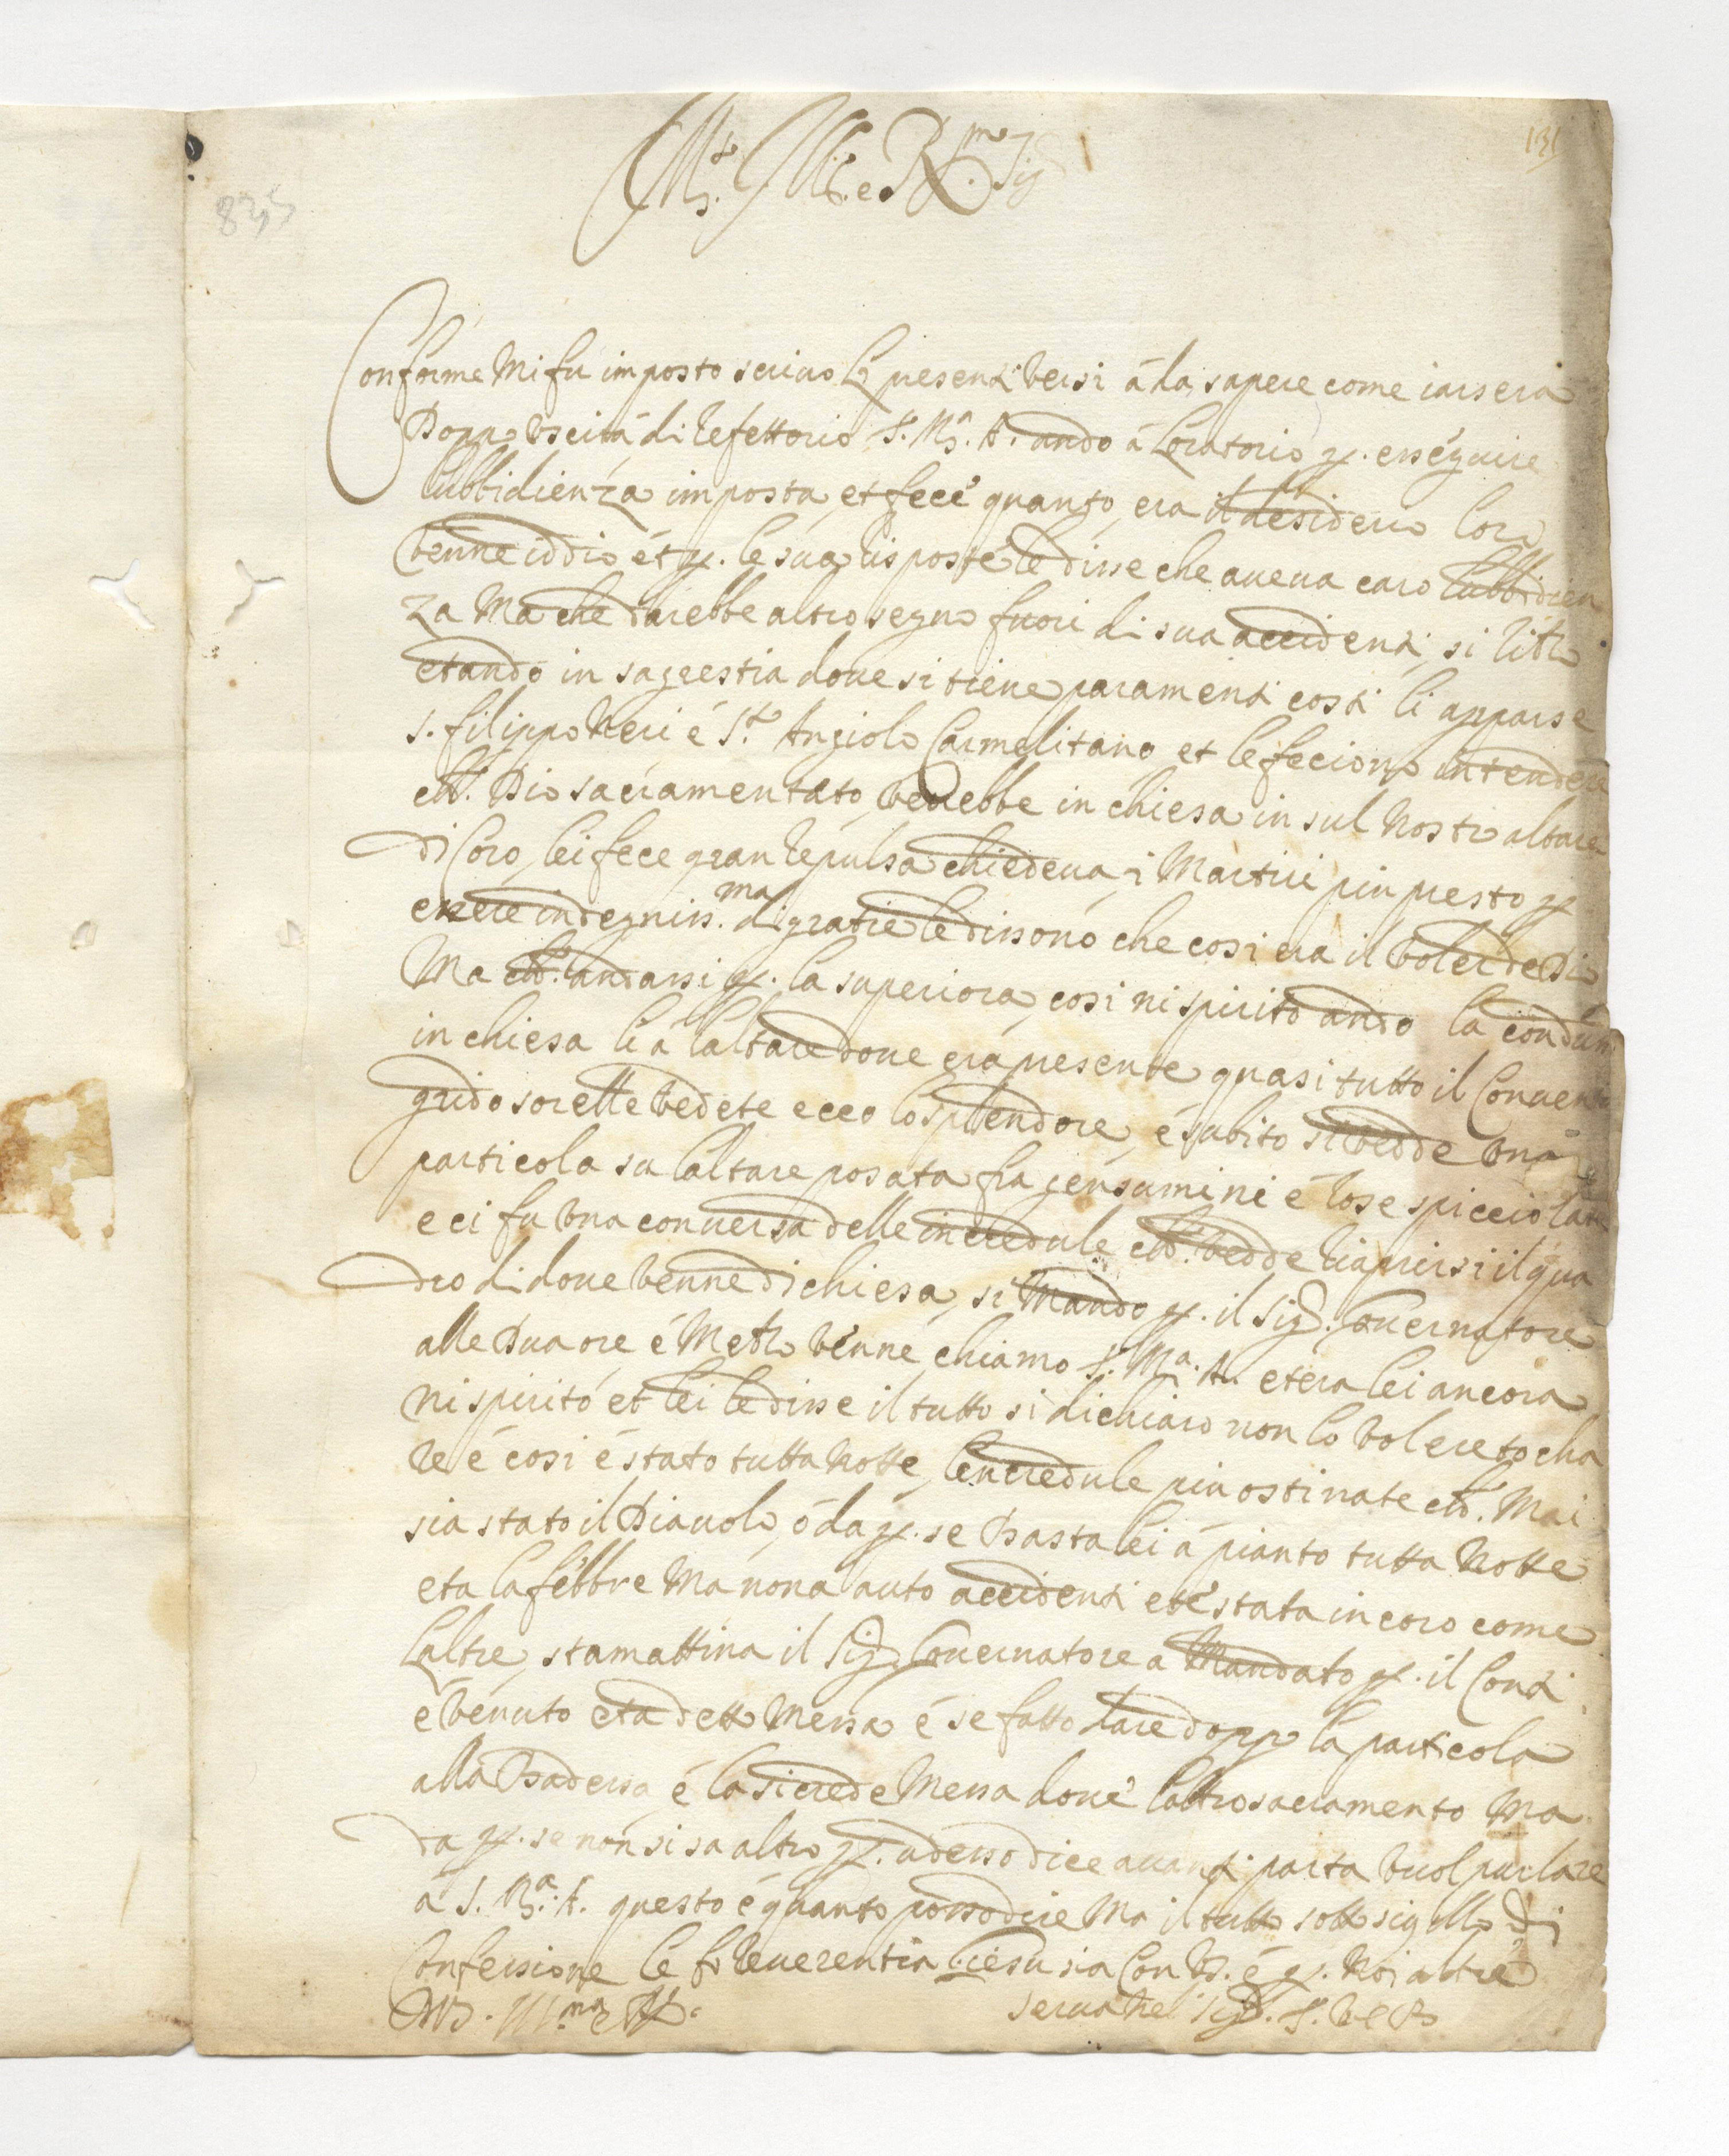 131
835
Mto. Illre. e Rmo. Sig
Conforme Mi fu imposto scrivo la presenti versi à da sapere come iarsera
Doppo uscita di Refettorio S. Ma. A. ando à Loratorio p. esseguire
lubbidienza imposta, et fece quanto, era il desiderio loro
venne iddio et p. le sua risposte le disse che aveva caro lubbidien
za Ma che darebbe altro segno fuori di sua accidenti, si ritiro
et ando in sagrestia dove si tiene paramenti costi li apparse
s. filippo Neri é S.to Angiolo Carmelitano et le feciono intendere
ch. Dio sacramentato, verrebbe in chiesa in sul Nostro altare
di Coro, lei fece gran repulsa chiedeva, i Martiri piu presto p
essere indegniss.ma di gratie le dissono che cosi era il voler de Dio
Ma ch. andassi p. la superiora, cosi ni spirito ando la condusse
in chiesa li à laltare dove era presente quasi tutto il Convento
grido sorelle vedete ecco lo splendore, é subito si vedde una
particola su laltare posata fra gensumini é rose spicciolate
e ci fu una conversa delle incredule ch. vedde riaprirsi il qua
dro di dove venne di chiesa, si Mando p. il Sig. Governatore
alle Dua ore, é Mezzo venne chiamo S. Ma. A. et era lei ancora
Ni spirito et lei le disse il tutto si dichiaro non lo volere tocha
re é cosi é stato tutta Notte, lencredule piu ostinate ch. Mai
sia stato il Diavolo, ó da p. se Basta lei á pianto tutta Notte
et a la febbre Ma non a auto accidenti et é stata in coro come
Laltre, stamattina il Sig. Governatore a Mandato p. il Conf.
é venuto et a detto Messa é se fatto dare doppo la particola
alla Badessa, é la si crede Messa dove laltro sacramento Ma
da p. se non si sa altro p. adesso dice avanti parta vuol parlare
á S. Ma. A. questo é quanto posso dire Ma il tutto sotto sigillo di
Confessione le fo Reverentia Giesu sia Con Vs. é p. Noi altre
Vs. Ill.ma e R.
Serva nel Sig.